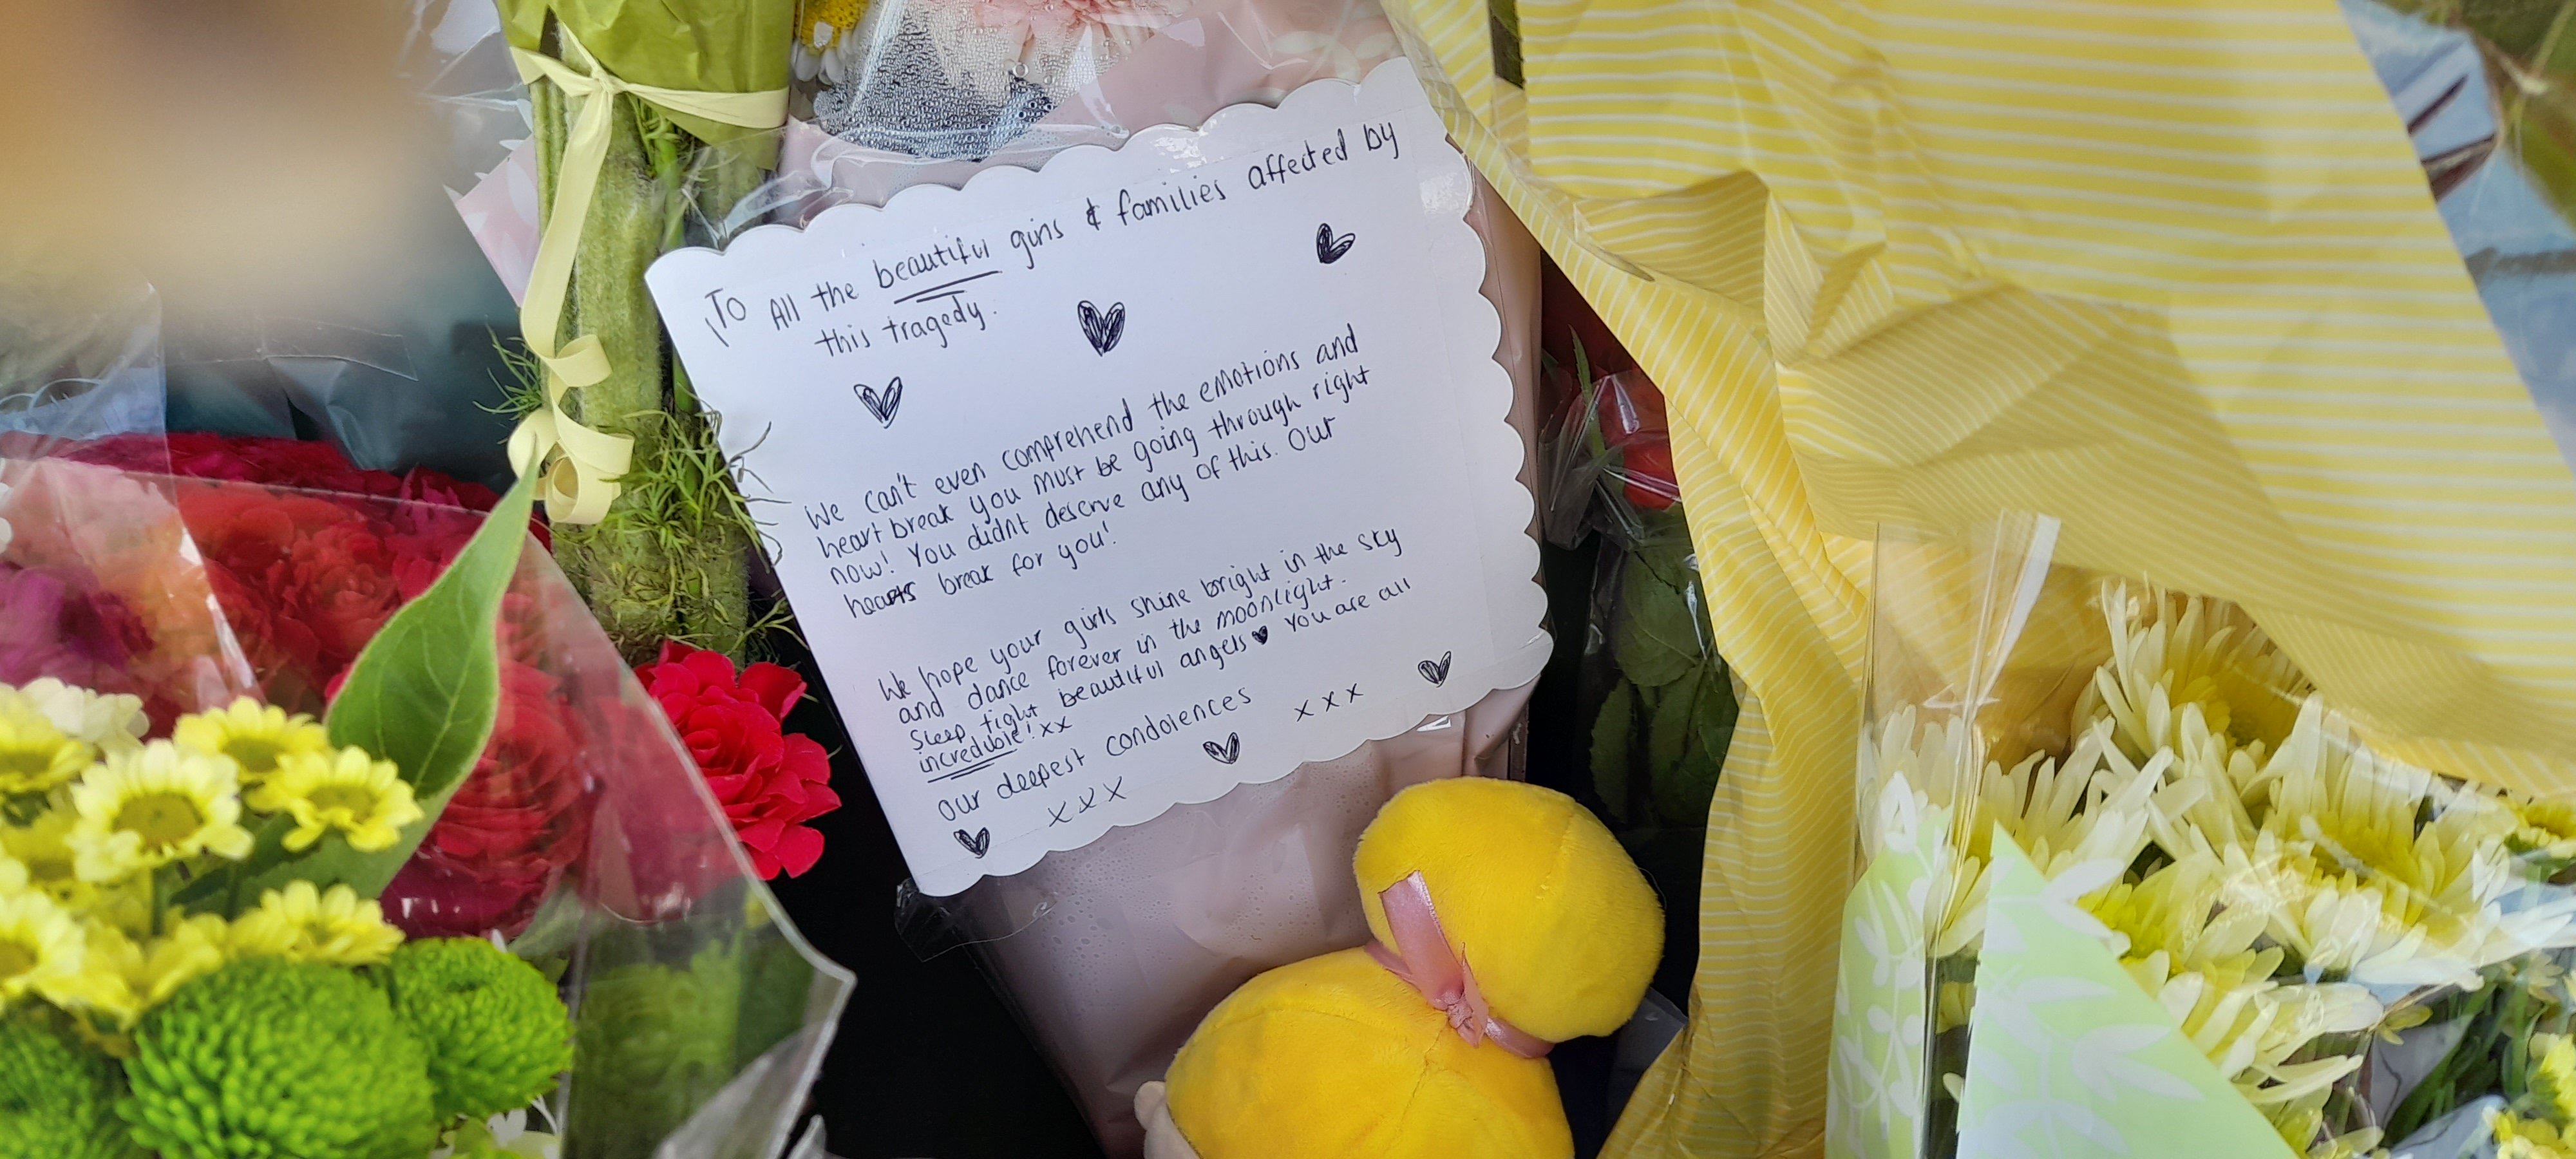 To All the beautiful girls & families affected by
this tragedy.
We can't even comprehend the emotions and
heart break you must be going through right
now! You didnt deserve any of this. Our
hearts break for you!
We hope your girls shine bright in the sky
and dance forever in the moonlight.
Sleep tight beautiful angels You are all
incredible! xx
our deepest condolences x x x
x x x